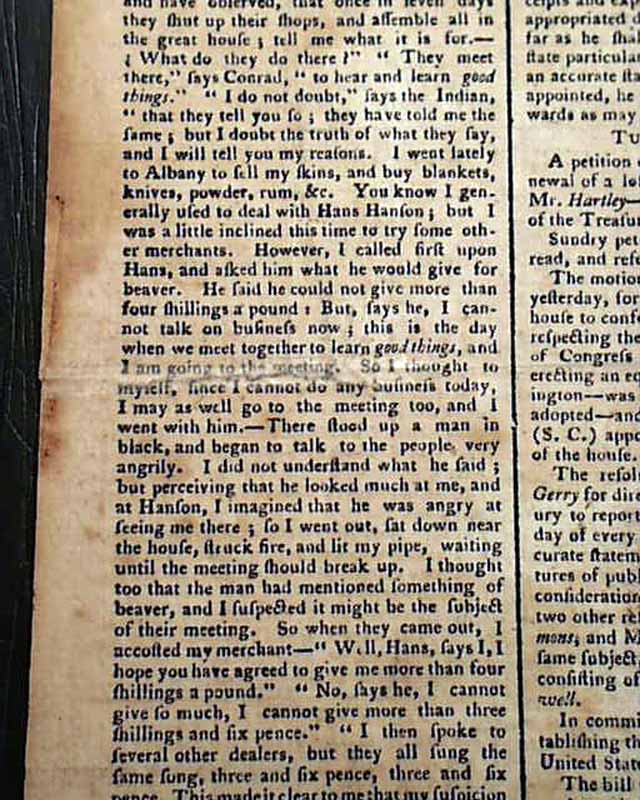 and have observed, that once in ſeven days
they ſhut up their ſhops, and aſſemble all in
the great houſe ; tell me what it is for.—
What do they do there ?" " They meet
there," ſays Conrad, " to hear and learn good
things." " I do not doubt," ſays the Indian,
" that they tell you ſo ; they have told me the
ſame ; but I doubt the truth of what they ſay,
and I will tell you my reaſons. I went lately
to Albany to ſell my ſkins, and buy blankets,
knives, powder, rum, &c. You know I gen-
erally uſed to deal with Hans Hanſon ; but I
was a little inclined this time to try ſome oth-
er merchants. However, I called firſt upon
Hans, and aſked him what he would give for
beaver. He ſaid he could not give more than
four ſhillings a pound : But, ſays he, I can-
not talk on buſineſs now ; this is the day
when we meet together to learn good things, and
I am going to the meeting. So I thought to
myſelf, ſince I cannot do any buſineſs today,
I may as well go to the meeting too, and I
went with him.—There ſtood up a man in
black, and began to talk to the people very
angrily. I did not underſtand what he ſaid ;
but perceiving that he looked much at me, and
at Hanſon, I imagined that he was angry at
ſeeing me there ; ſo I went out, ſat down near
the houſe, ſtruck fire, and lit my pipe, waiting
until the meeting ſhould break up. I thought
too that the man had mentioned ſomething of
beaver, and I ſuſpected it might be the ſubject
of their meeting. So when they came out, I
accoſted my merchant—" Well, Hans, ſays I, I
hope you have agreed to give me more than four
ſhillings a pound." " No, ſays he, I cannot
give ſo much, I cannot give more than three
ſhillings and ſix pence." " I then ſpoke to
ſeveral other dealers, but they all ſung the
ſame ſong, three and ſix pence, three and ſix
pence. This made it clear to me that my ſuſpicion
appropriated
far as he ſhal
ſtate particular
an accurate ſta
appointed, he
wards as may
TU
A petition
newal of a loſ
Mr. Hartley—
of the Treaſur
Sundry pet
read, and refe
The motion
yeſterday, for
houſe to confe
reſpecting the
of Congreſs
erecting an eq
ington—was
adopted—and
(S. C.) appe
of the houſe.
The reſol
Gerry for dire
ury to report
day of every
curate ſtatem
tures of publ
conſideration
two other reſ
mons, and M
ſame ſubject,
conſiſting of
well.
In commi
tabliſhing th
United State
The bill